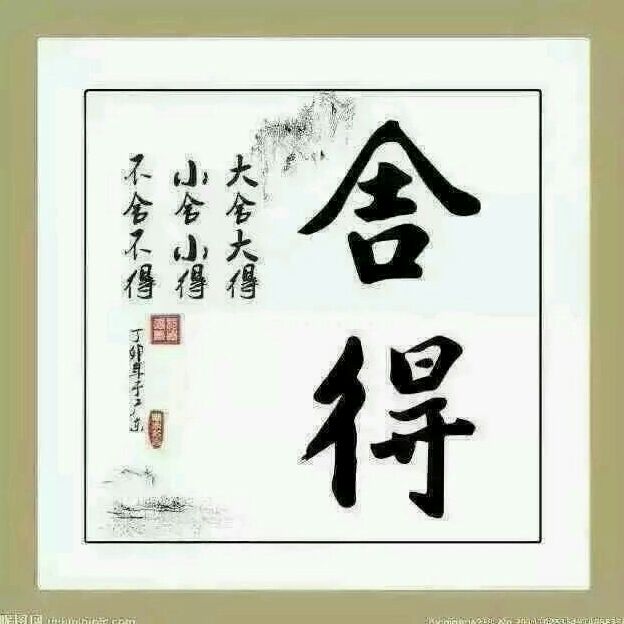 舍得
大舍大得
小舍小得
不舍不得
丁卯年于江东
昵图网